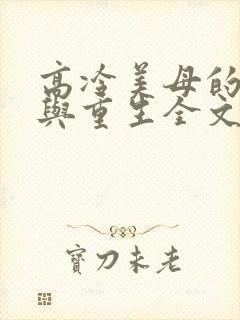 高冷美母的
與重生全文
寶刀未老